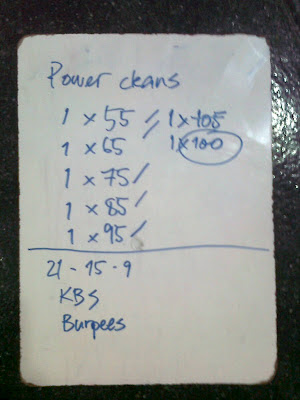 Power cleans
1 x 55 // 1 x 105
1 x 65 1 x 100
1 x 75 /
1 x 85 /
1 x 95 /
21 - 15 - 9
KBS
Burpees